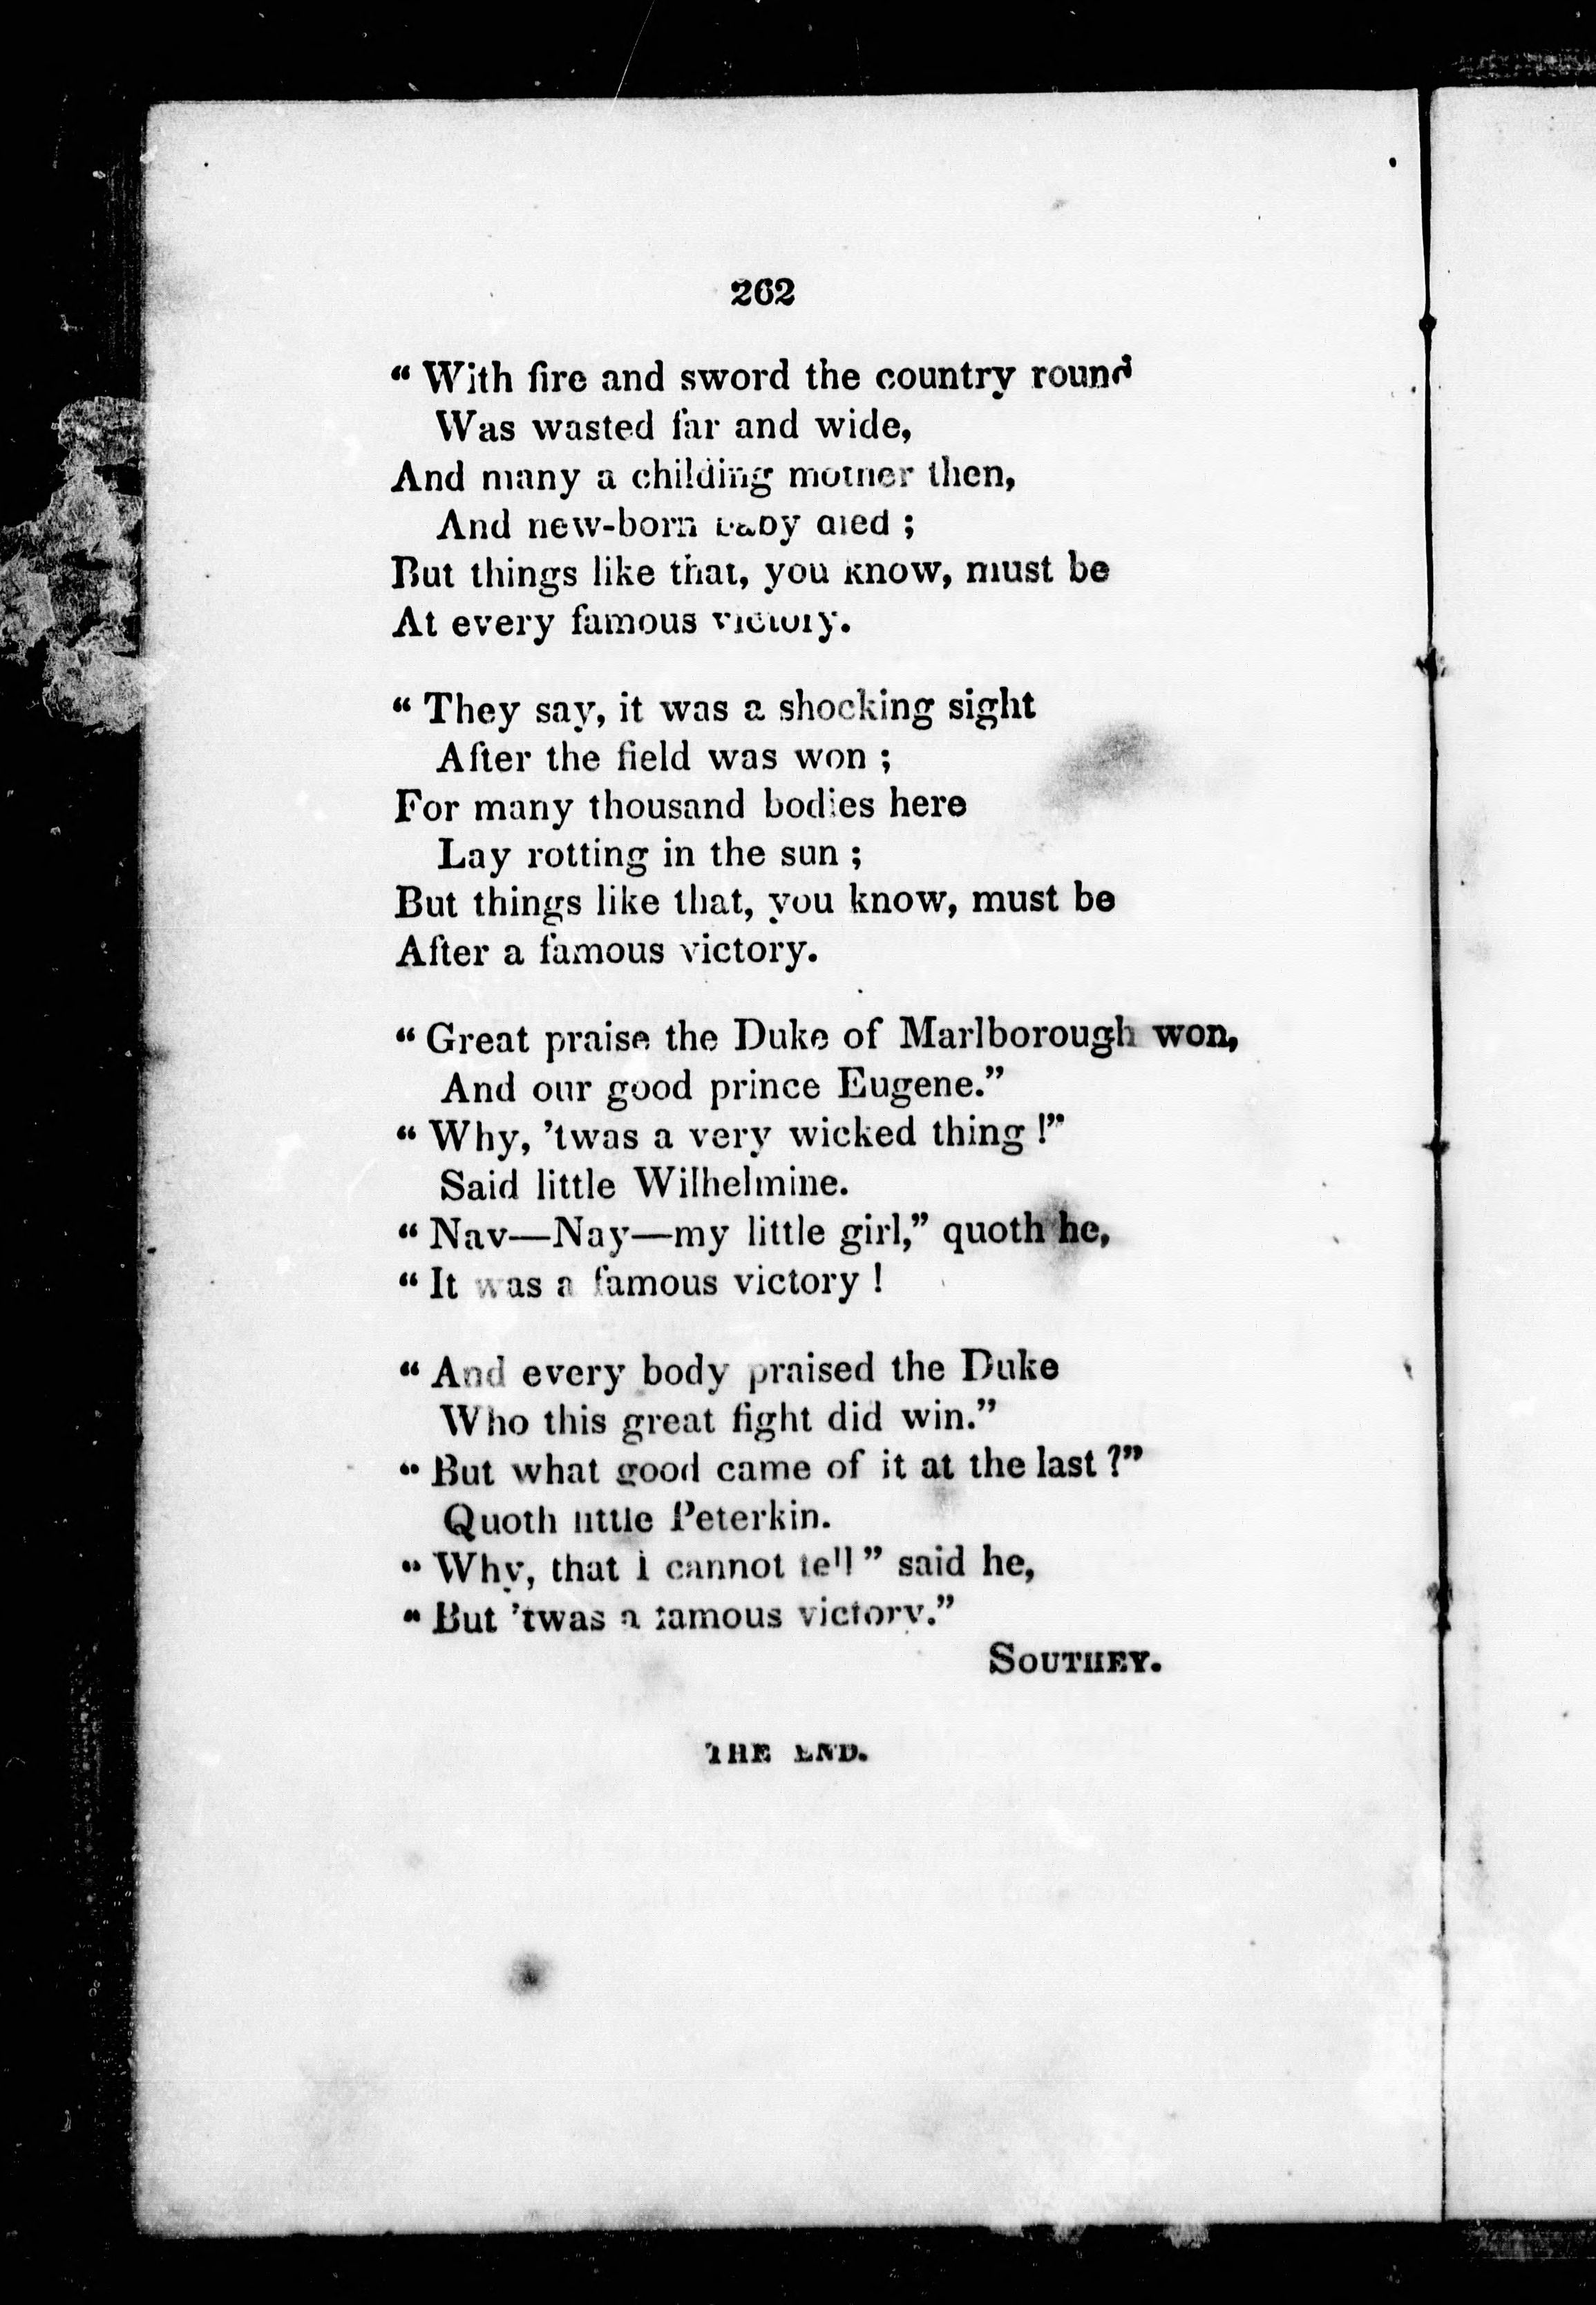 262
“ With fire and sword the country round
Was wasted far and wide,
And many a childing mother then,
And new-born baby died ;
But things like that, you know, must be
At every famous victory.
“ They say, it was a shocking sight
After the field was won ;
For many thousand bodies here
Lay rotting in the sun ;
But things like that, you know, must be
After a famous victory.
“ Great praise the Duke of Marlborough won,
And our good prince Eugene.”
“ Why, ’twas a very wicked thing !”
Said little Wilhelmine.
“ Nay—Nay—my little girl,” quoth he,
“ It was a famous victory !
“ And every body praised the Duke
Who this great fight did win.”
“ But what good came of it at the last ?”
Quoth little Peterkin.
“ Why, that I cannot tell ” said he,
“ But ’twas a famous victory.”
SOUTHEY.
THE END.